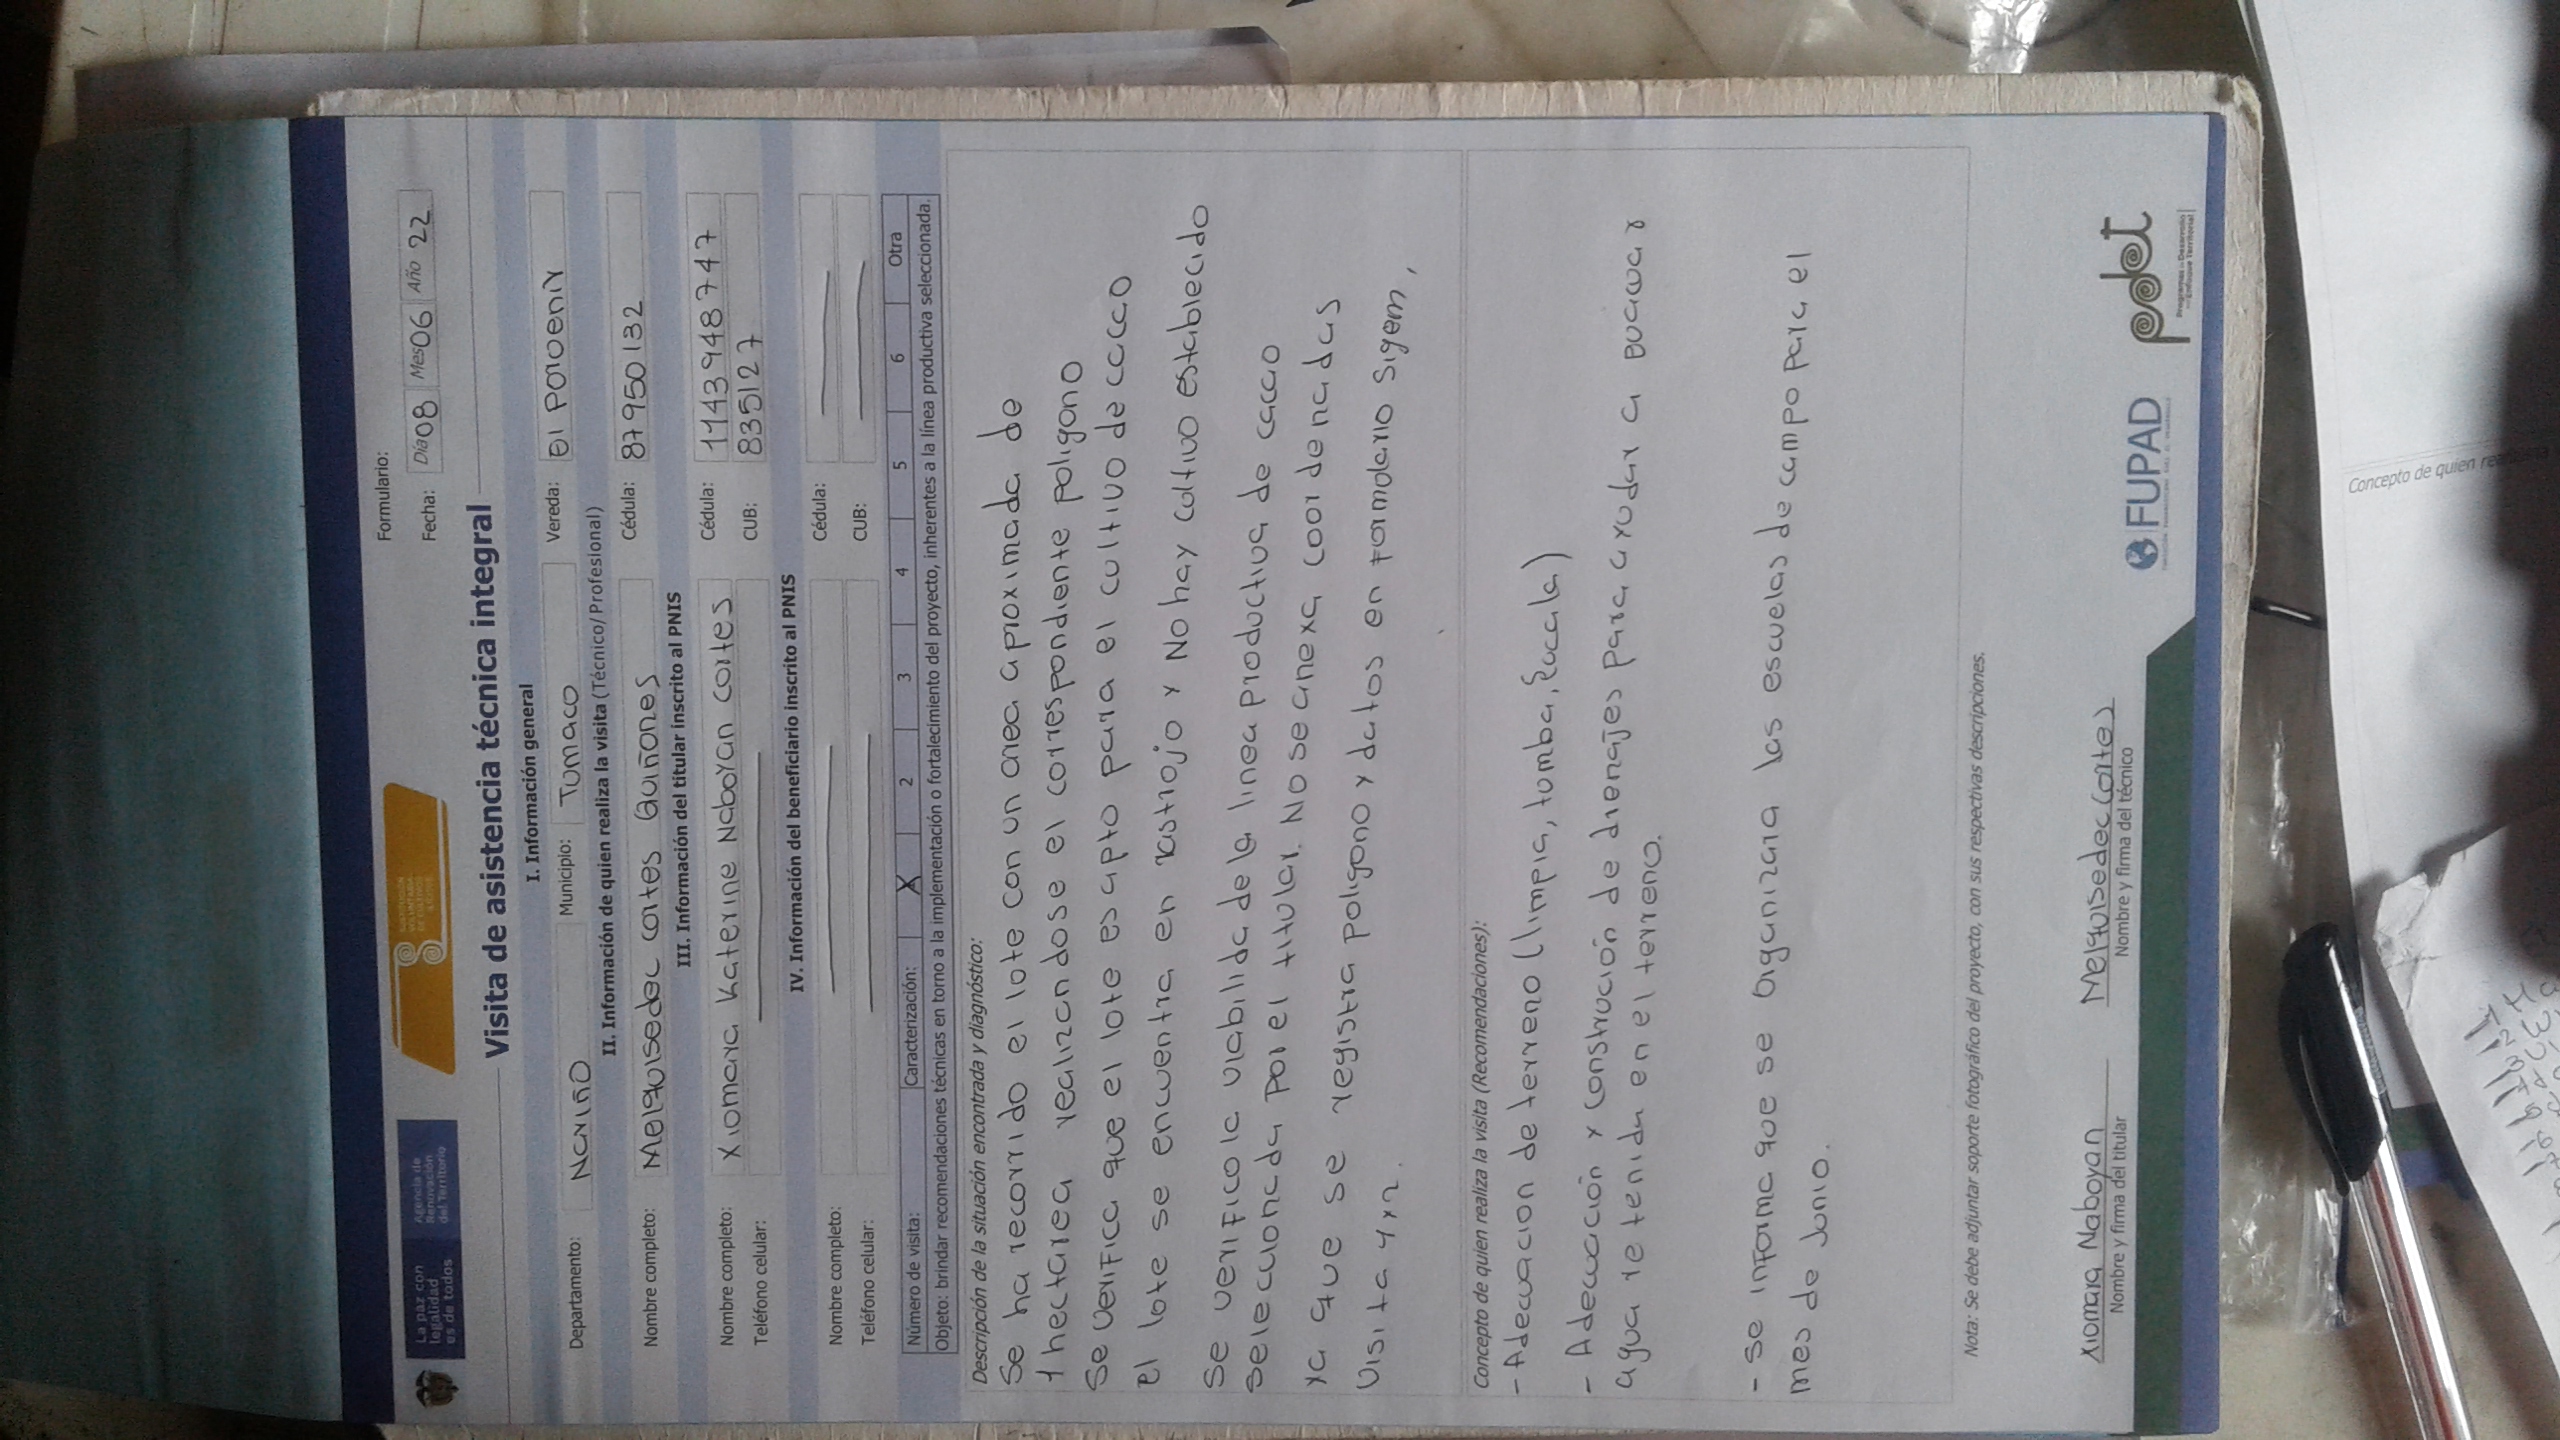 La paz con
legalidad
es de todos
Agencia de
Renovación
del Territorio
SUSTITUCIÓN
VOLUNTARIA
DE CULTIVOS
Formulario:
Fecha: Día 08 Mes 06 Año 22
Visita de asistencia técnica integral
I. Información general
Departamento: Nariño Municipio: Tumaco Vereda: El Porvenir
II. Información de quien realiza la visita (Técnico/Profesional)
Nombre completo: Melquisedec Cortes Quiñones Cédula: 87950132
III. Información del titular inscrito al PNIS
Nombre completo: Xiomara Katerine Naboyan Cortes Cédula: 1143948747
Teléfono celular: CUB: 835127
IV. Información del beneficiario inscrito al PNIS
Nombre completo: Cédula:
Teléfono celular: CUB:
Número de visita: Caracterización: X 2 3 4 5 6 Otra
Objeto: brindar recomendaciones técnicas en torno a la implementación o fortalecimiento del proyecto, inherentes a la línea productiva seleccionada.
Descripción de la situación encontrada y diagnóstico:
Se ha recorrido el lote con un area aproximada de
1 hectarea realizandose el correspondiente poligono
Se verifica que el lote es apto para el cultivo de cacao
El lote se encuentra en rastrojo y No hay cultivo establecido
Se verifico la viabilidad de la linea productiva de cacao
seleccionada por el titular. No se anexa coordenadas
ya que se registra poligono y datos en formolario sigem,
Visita 4x2.
Concepto de quien realiza la visita (Recomendaciones):
- Adecuacion de terreno (limpia, tumba, Eucala)
- Adecuación y construción de drenajes para ayudar a evacuar
agua retenida en el terreno.
- Se informa que se organizara las escuelas de campo para el
mes de Junio.
Nota: Se debe adjuntar soporte fotográfico del proyecto, con sus respectivas descripciones.
Xiomara Naboyan Melquisedec Cortes
Nombre y firma del titular Nombre y firma del técnico
FUPAD
pdet
Programas de Desarrollo
con Enfoque Territorial
Concepto de quien